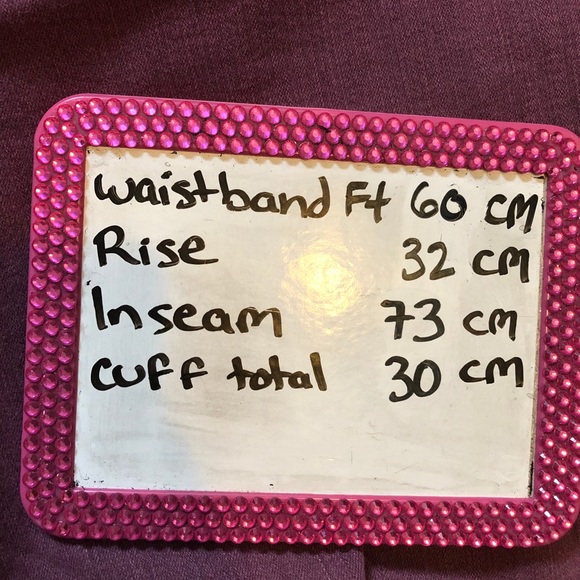 Waistband Ft 60 cm
Rise 32 cm
Inseam 73 cm
Cuff total 30 cm